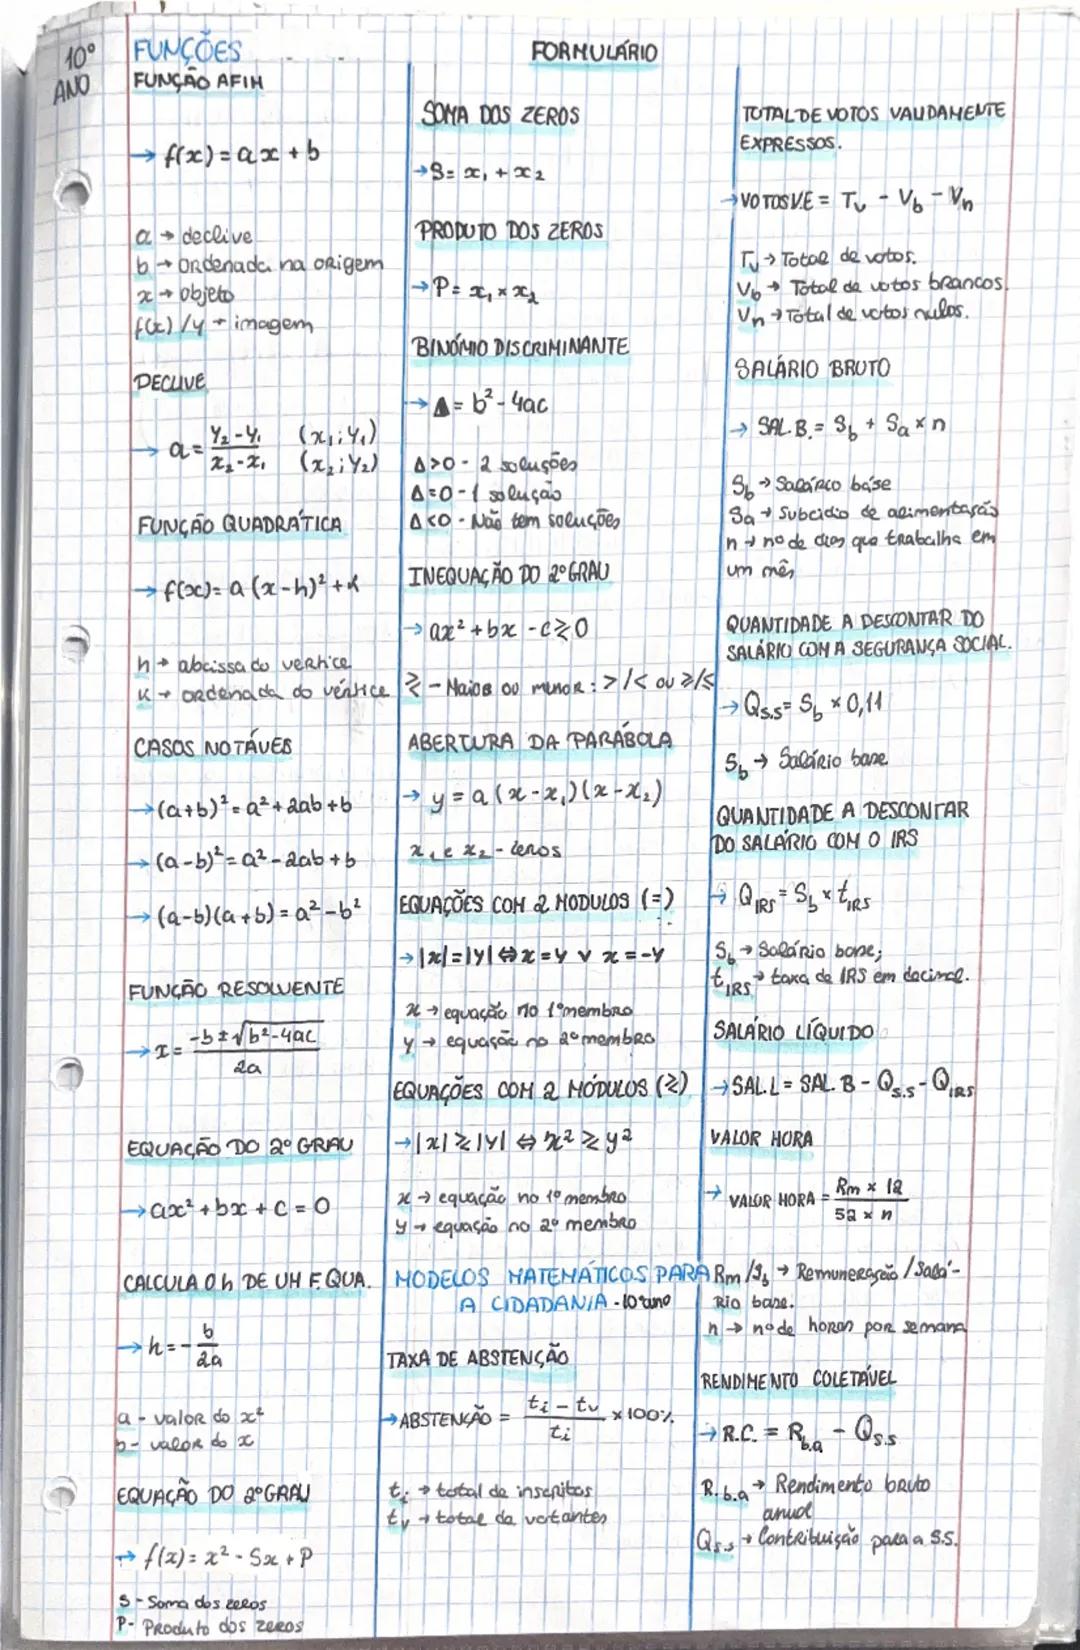 10º
ANO
FUNÇÕES
FUNÇÃO AFIM
→ f(x) = ax + b
a → declive
b → ordenada na origem
x → objeto
f(x) / y → imagem
DECLIVE
→ a = y₂-y₁ / x₂-x₁ (x₁; y₁)
(x₂; y₂)
FUNÇÃO QUADRÁTICA
→ f(x) = a (x-h)² + k
h → abcissa do vertice
k → ordenada do vértice
CASOS NOTÁVES
→ (a+b)² = a² + 2ab + b
→ (a-b)² = a² - 2ab + b
→ (a-b)(a+b) = a² - b²
FUNÇÃO RESOLVENTE
→ x = -b ± √b²-4ac / 2a
EQUAÇÃO DO 2º GRAU
→ ax² + bx + c = 0
CALCULA O h DE UM F. QUA.
→ h = - b / 2a
a - valor do x²
b - valor do x
EQUAÇÃO DO 2º GRAU
→ f(x) = x² - Sx + P
S - Soma dos zeros
P - Produto dos zeros
FORMULÁRIO
SOMA DOS ZEROS
→ S = x₁ + x₂
PRODUTO DOS ZEROS
→ P = x₁ × x₂
BINÓMIO DISCRIMINANTE
→ Δ = b² - 4ac
Δ>0 - 2 soluções
Δ=0 - 1 solução
Δ<0 - Não tem soluções
INEQUAÇÃO DO 2º GRAU
→ ax² + bx - c ≷ 0
≷ - Maior ou minor : >/< ou ≥/≤
ABERTURA DA PARÁBOLA
→ y = a (x-x₁)(x-x₂)
x₁ e x₂ - zeros
EQUAÇÕES COM 2 MODULOS (=)
→ |x| = |y| ⇔ x = y ∨ x = -y
x → equação no 1º membro
y → equação no 2º membro
EQUAÇÕES COM 2 MÓDULOS (≷)
→ |x| ≷ |y| ⇔ x² ≷ y²
x → equação no 1º membro
y → equação no 2º membro
MODELOS MATEMÁTICOS PARA
A CIDADANIA - 10º ano
TAXA DE ABSTENÇÃO
→ ABSTENÇÃO = ti - tv / ti × 100%
ti → total de inscritos
tv → total de votantes
TOTAL DE VOTOS VALIDAMENTE
EXPRESSOS.
→ VOTOS V.E = Tv - Vb - Vn
Tv → Total de votos.
Vb → Total de votos brancos.
Vn → Total de votos nulos.
SALÁRIO BRUTO
→ SAL. B. = Sb + Sa × n
Sb → Salário base
Sa → Subcídio de alimentação
n → nº de dias que trabalha em
um mês
QUANTIDADE A DESCONTAR DO
SALÁRIO COM A SEGURANÇA SOCIAL.
→ Qs.s = Sb × 0,11
Sb → Salário base
QUANTIDADE A DESCONTAR
DO SALÁRIO COM O IRS
→ QIRS = Sb × tIRS
Sb → Salário base;
tIRS → taxa de IRS em decimal.
SALÁRIO LÍQUIDO
→ SAL. L = SAL. B - Qs.s - QIRS
VALOR HORA
→ VALOR HORA = Rm × 12 / 52 × n
Rm / Sb → Remuneração / Salá-
rio base.
n → nº de horas por semana
RENDIMENTO COLETÁVEL
→ R.C. = Rb.a - Qs.s
R.b.a → Rendimento bruto
anual
Qs.s → Contribuição para a S.S.